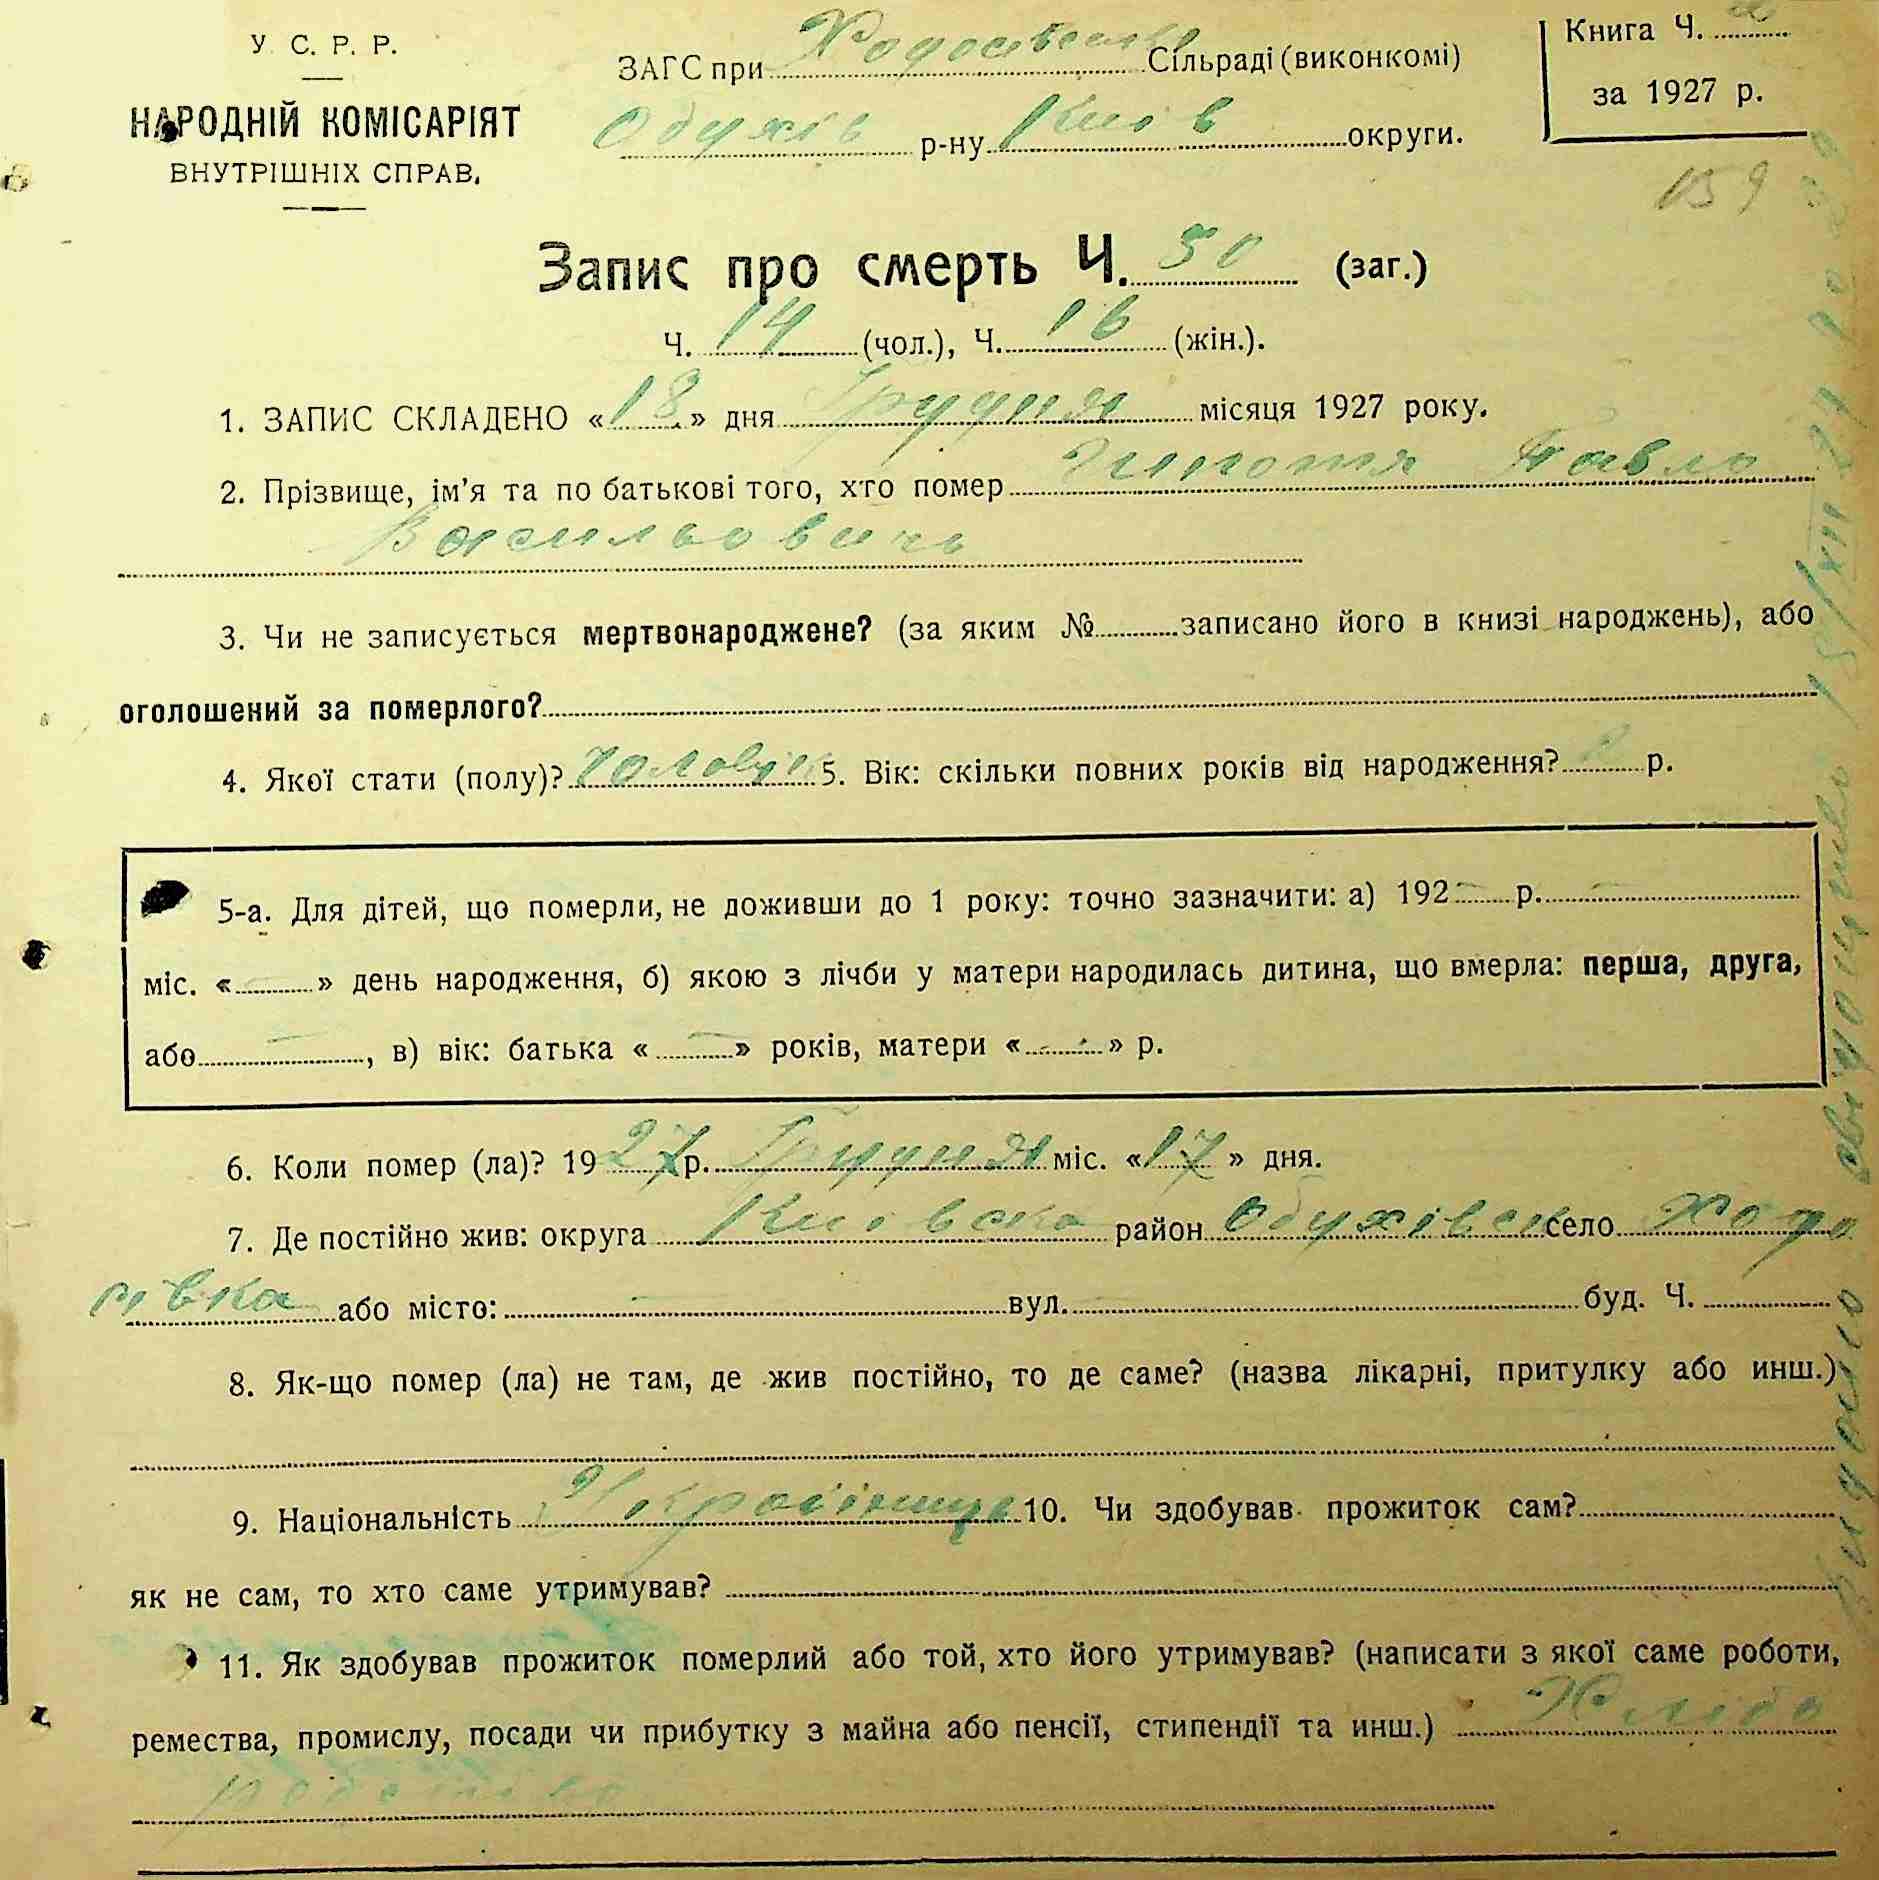 У. С. Р. Р.
НАРОДНІЙ КОМІСАРІЯТ
ВНУТРІШНІХ СПРАВ.
ЗАГС при Сільраді (виконкомі)
Обухів р-ну Київ округи.
Книга Ч.
за 1927 р.
159
Запис про смерть Ч. 30 (заг.)
Ч. 14 (чол.), Ч. 16 (жін.).
1. ЗАПИС СКЛАДЕНО «18» дня Грудня місяця 1927 року.
2. Прізвище, ім'я та по батькові того, хто помер Павло
Васильовичь
3. Чи не записується мертвонароджене? (за яким № записано його в книзі народжень), або
оголошений за померлого?
4. Якої стати (полу)? чоловік 5. Вік: скільки повних років від народження? р.
5-а. Для дітей, що померли, не доживши до 1 року: точно зазначити: а) 192 — р. —
міс. « — » день народження, б) якою з лічби у матери народилась дитина, що вмерла: перша, друга,
або — , в) вік: батька « — » років, матери « — » р.
6. Коли помер (ла)? 1927 р. Грудня міс. «17» дня.
7. Де постійно жив: округа Київска район Обухівск село Ходо
сівка або місто: — вул. — буд. Ч.
8. Як-що помер (ла) не там, де жив постійно, то де саме? (назва лікарні, притулку або инш.)
9. Національність 10. Чи здобував прожиток сам?
як не сам, то хто саме утримував?
11. Як здобував прожиток померлий або той, хто його утримував? (написати з якої саме роботи,
ремества, промислу, посади чи прибутку з майна або пенсії, стипендії та инш.) Хлібо
робство